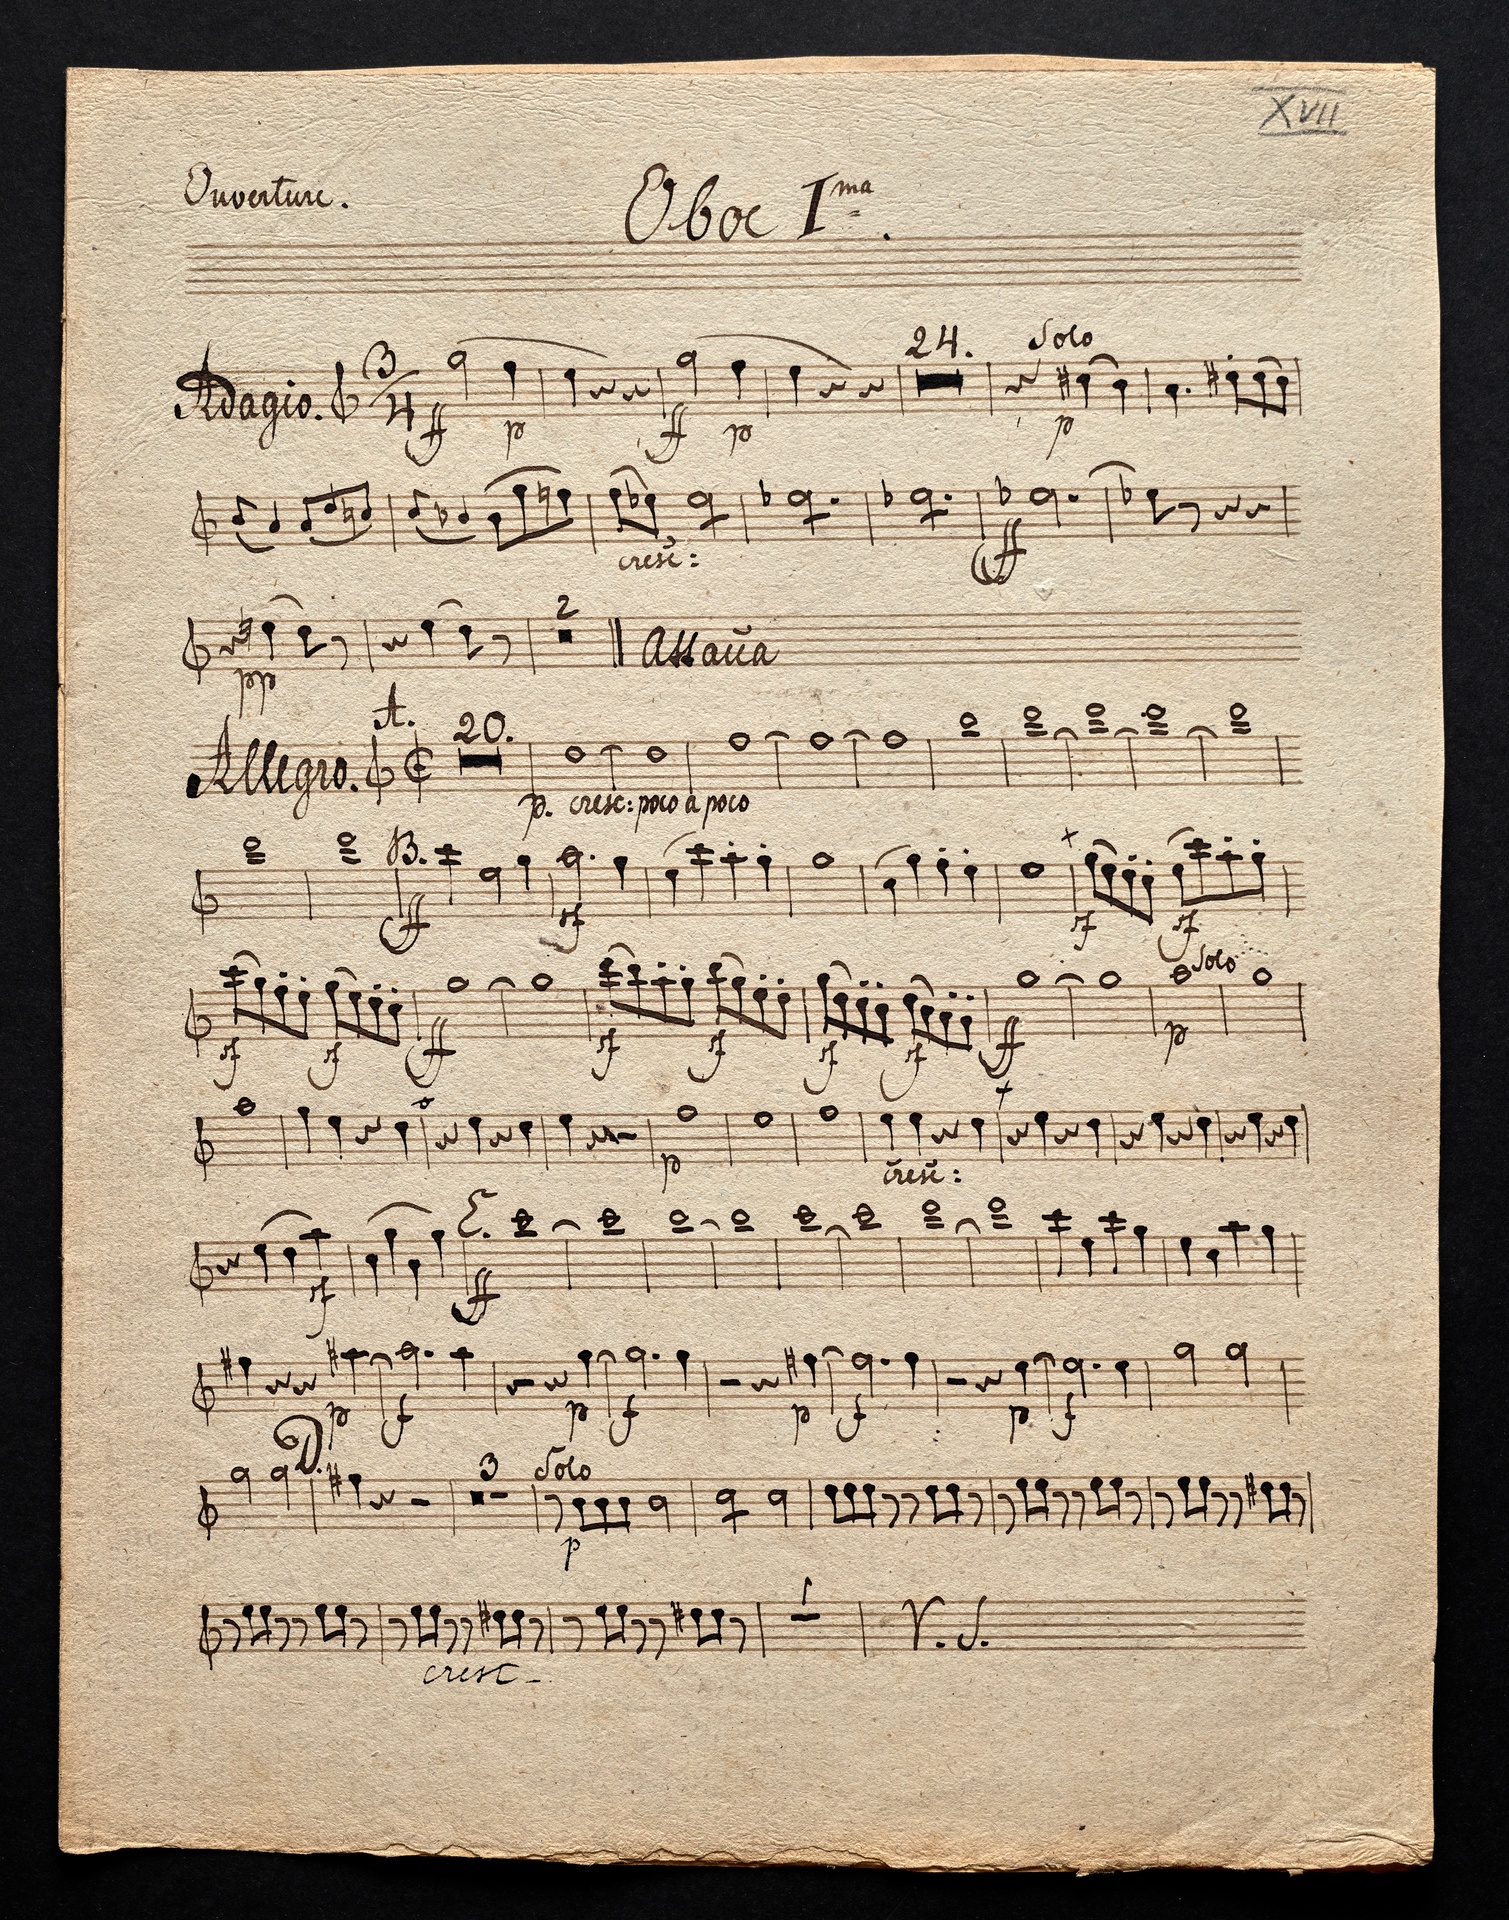 XVII
Ouverture.
Oboe I ma.
24. Solo
Adagio. 3/4 ff p ff p p
cresc: ff
2
pp
A. 20.
Allegro.
p. cresc: poco a poco
B.
ff sf sf sf
Solo
sf sf ff sf sf sf sf ff p
p cresc:
sf ff
p f p f p f p f
D. 3 Solo
p
1
V. S.
cresc